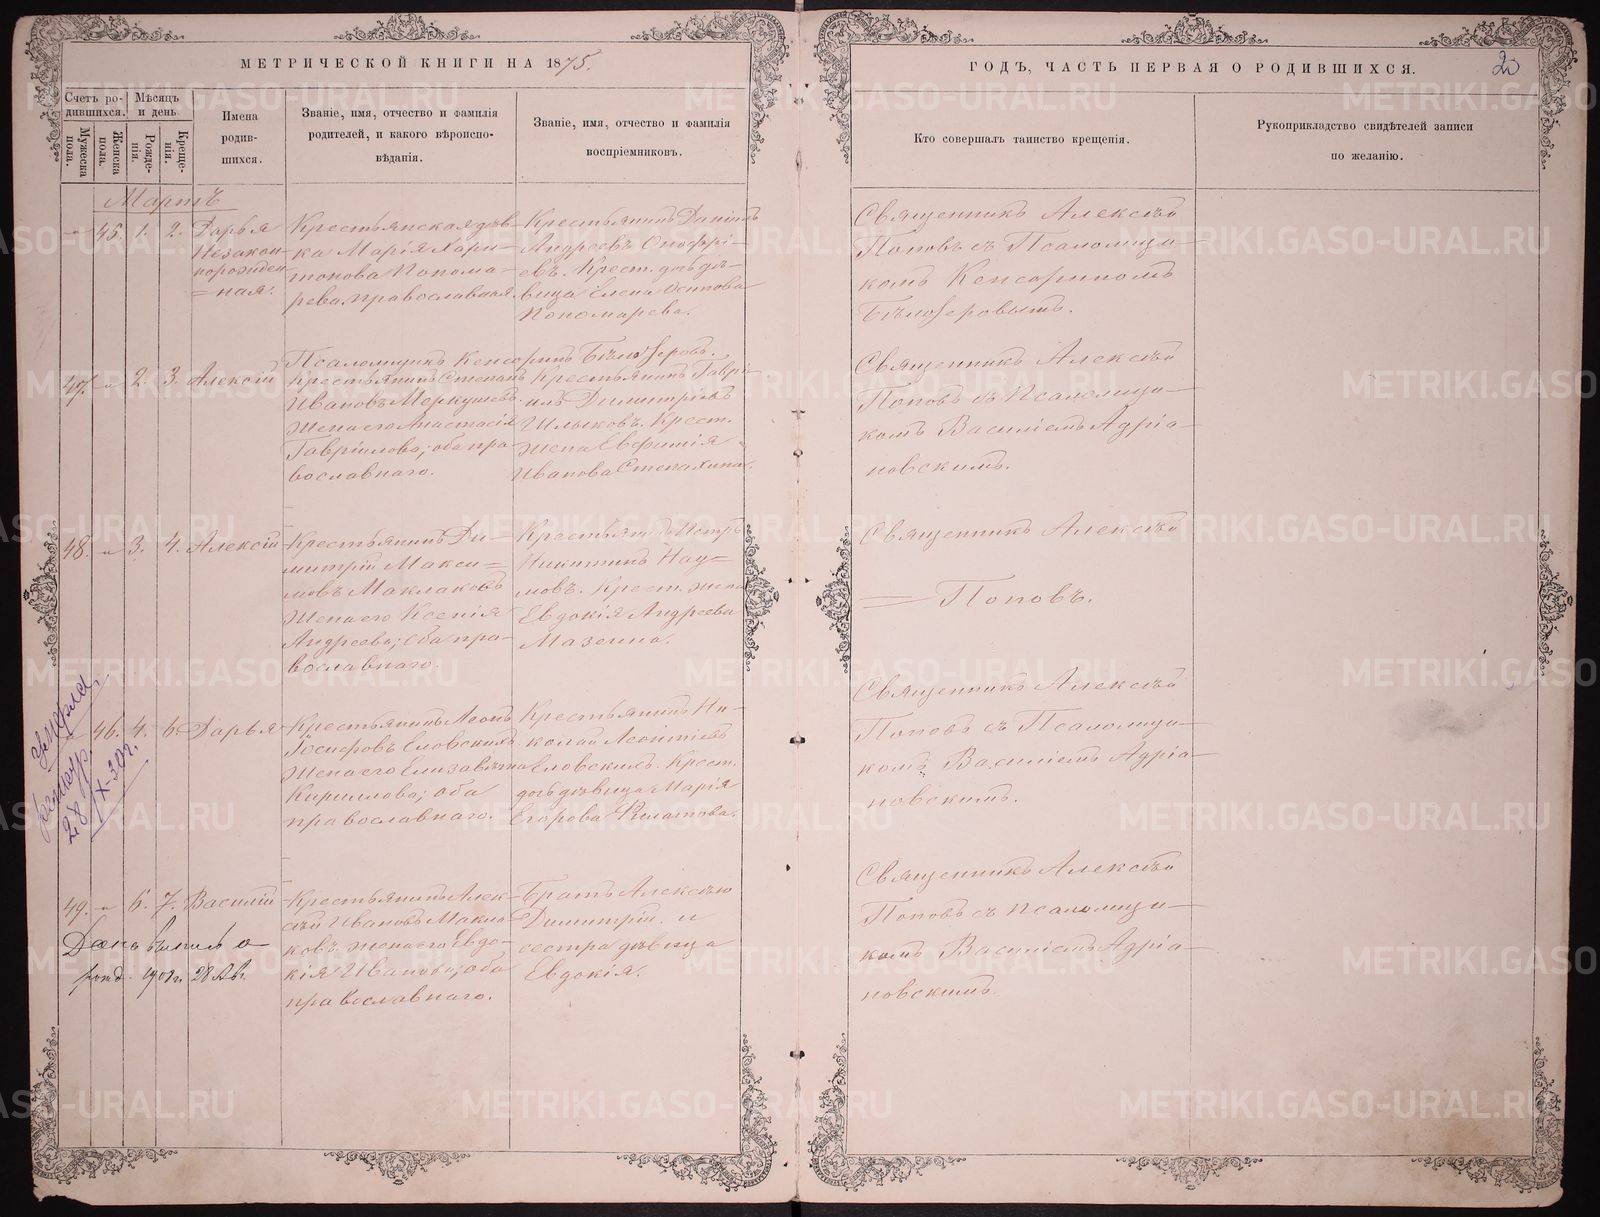 МЕТРИЧЕСКОЙ КНИГИ НА 1875.
Счетъ родившихся.
Мужеска пола.
Женска пола.
Мѣсяцъ и день
Рожденія.
Крещенія.
Имена
родив-
шихся.
Званіе, имя, отчество и фамилія
родителей, и какого вѣроиспо-
вѣданія.
Званіе, имя, отчество и фамилія
воспріемниковъ.
ГОДЪ, ЧАСТЬ ПЕРВАЯ О РОДИВШИХСЯ.
20
Кто совершалъ таинство крещенія.
Рукоприкладство свидѣтелей записи
по желанію.
Мартъ
" 45. 1. 2.
Дарья
Незакон-
норожден-
=ная.
Крестьянская дѣв-
ка Марія Хари-
тонова Понома-
рева, православная.
Крестьянинъ Даніилъ
Андреевъ Оноѳрі-
евъ. Крест. дочь дѣ-
вица Елена Осипова
Пономарева.
Священникъ Алексѣй
Поповъ съ Псаломщи-
комъ Кенсориномъ
Бѣлозеровымъ.
Псаломщикъ Кенсоринъ Бѣлозеровъ.
47. " 2. 3.
Алексій
Крестьянинъ Степанъ
Ивановъ Меркушевъ
жена его Анастасія
Гавріилова; оба пра-
вославнаго.
Крестьянинъ Гаврі-
илъ Димитріевъ
Шлыковъ. Крест.
жена Евфимія
Иванова Степахина.
Священникъ Алексѣй
Поповъ съ Псаломщи-
комъ Василіемъ Адріа-
новскимъ.
48. " 3. 4.
Алексій
Крестьянинъ Ди-
митрій Макси-
мовъ Маклаковъ
жена его Ксенія
Андреева; оба пра-
вославнаго.
Крестьянинъ Петръ
Никитинъ Нау-
мовъ. Крест. жена
Евдокія Андреева
Мазеина.
Священникъ Алексѣй
Поповъ.
умерла
28/X-30 г.
46. 4. 6.
Дарья
Крестьянинъ Леонъ
Іосифовъ Еловскихъ
жена его Елизавета
Кириллова; оба
православнаго.
Крестьянинъ Ни-
колай Леонтіевъ
Еловскихъ. Крест.
дочь дѣвица Марія
Егорова
Священникъ Алексѣй
Поповъ съ Псаломщи-
комъ Василіемъ Адріа-
новскимъ.
49. " 6. 7.
Василій
Крестьянинъ Алек-
сѣй Ивановъ Макла-
ковъ. жена его Евдо-
кія Иванова; оба
православнаго.
Братъ Алексѣю
Димитрій и
сестра дѣвица
Евдокія.
Священникъ Алексѣй
Поповъ съ Псаломщи-
комъ Василіемъ Адріа-
новскимъ.
Дана выпись о
рожд.
METRIKI.GASO-URAL.RU